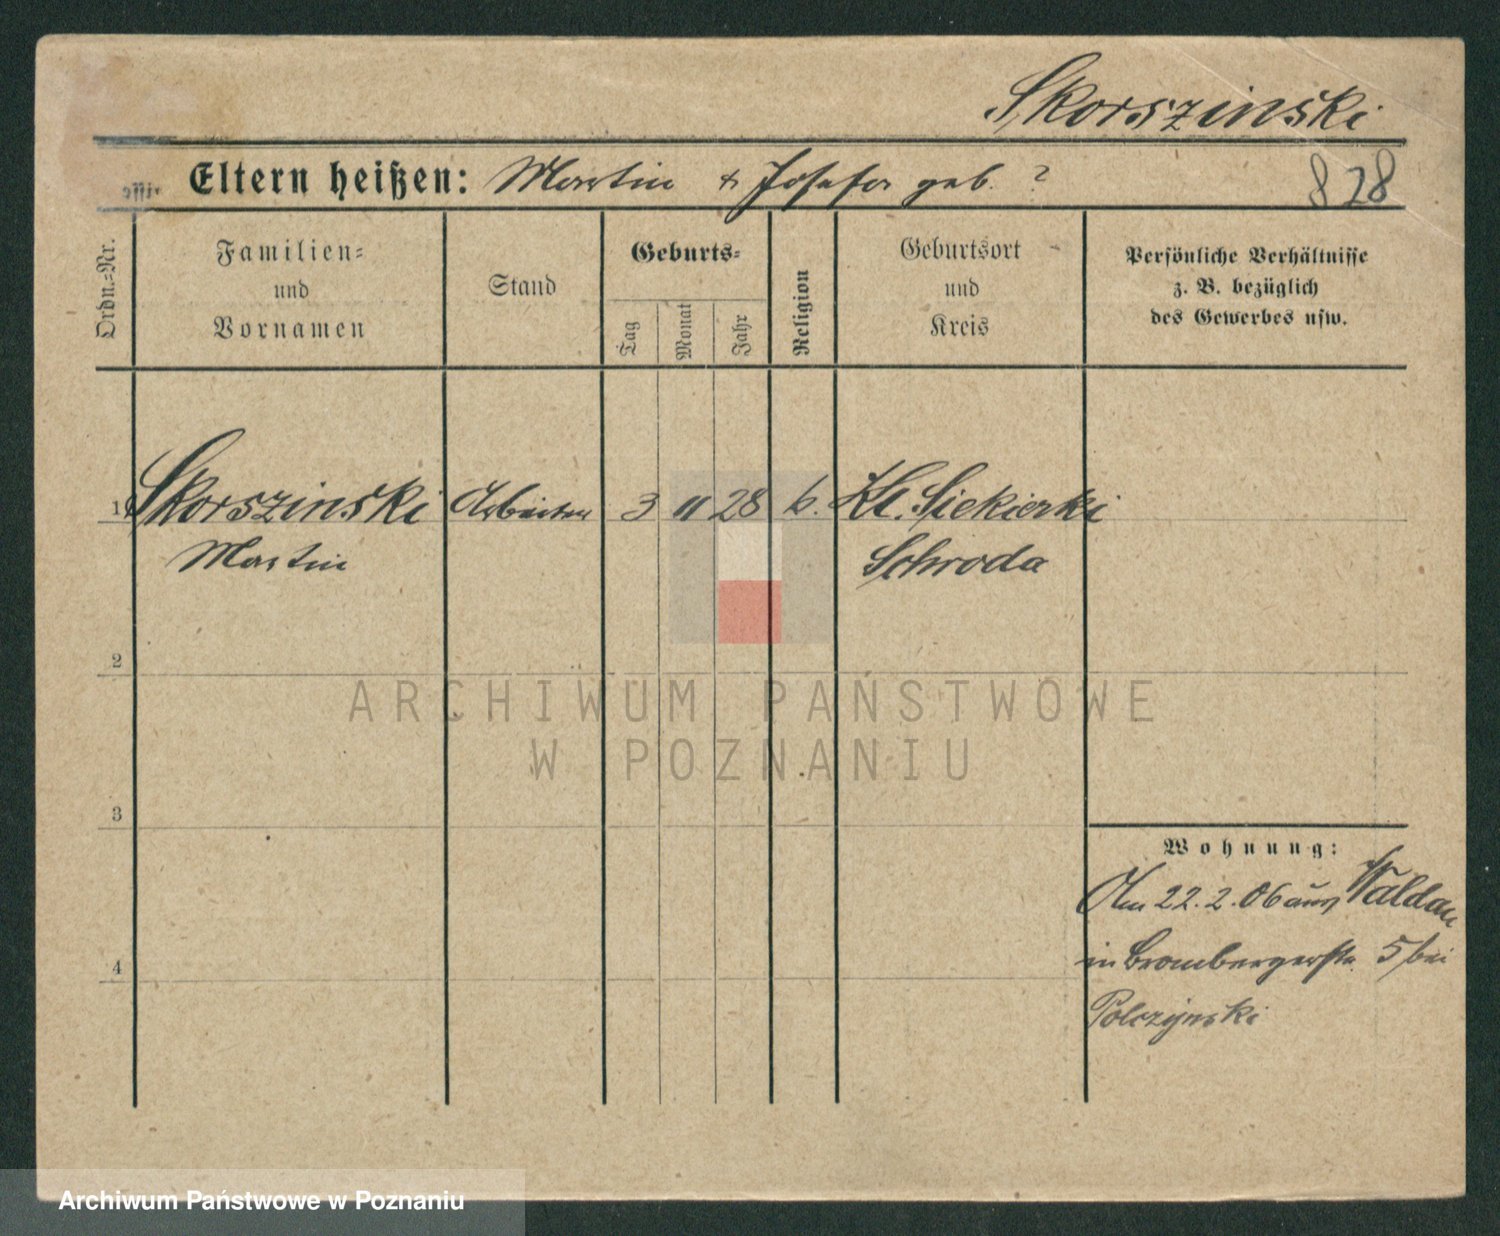 Skorszinski
Eltern heißen: Martin & Josefa geb. ?
828
Ordn.-Nr.
Familien- und Vornamen
Stand
Geburts-
Tag
Monat
Jahr
Religion
Geburtsort und Kreis
Persönliche Verhältnisse
z. B. bezüglich
des Gewerbes usw.
1 Skorszinski Arbeiter 3 11 28 k. Kl. Siekierki
Martin Schroda
2
ARCHIWUM PAŃSTWOWE
W POZNANIU
3
Wohnung:
Am 22.2.06 aus Waldau
4
in Brombergerstr. 5 bei
Polczynski
Archiwum Państwowe w Poznaniu